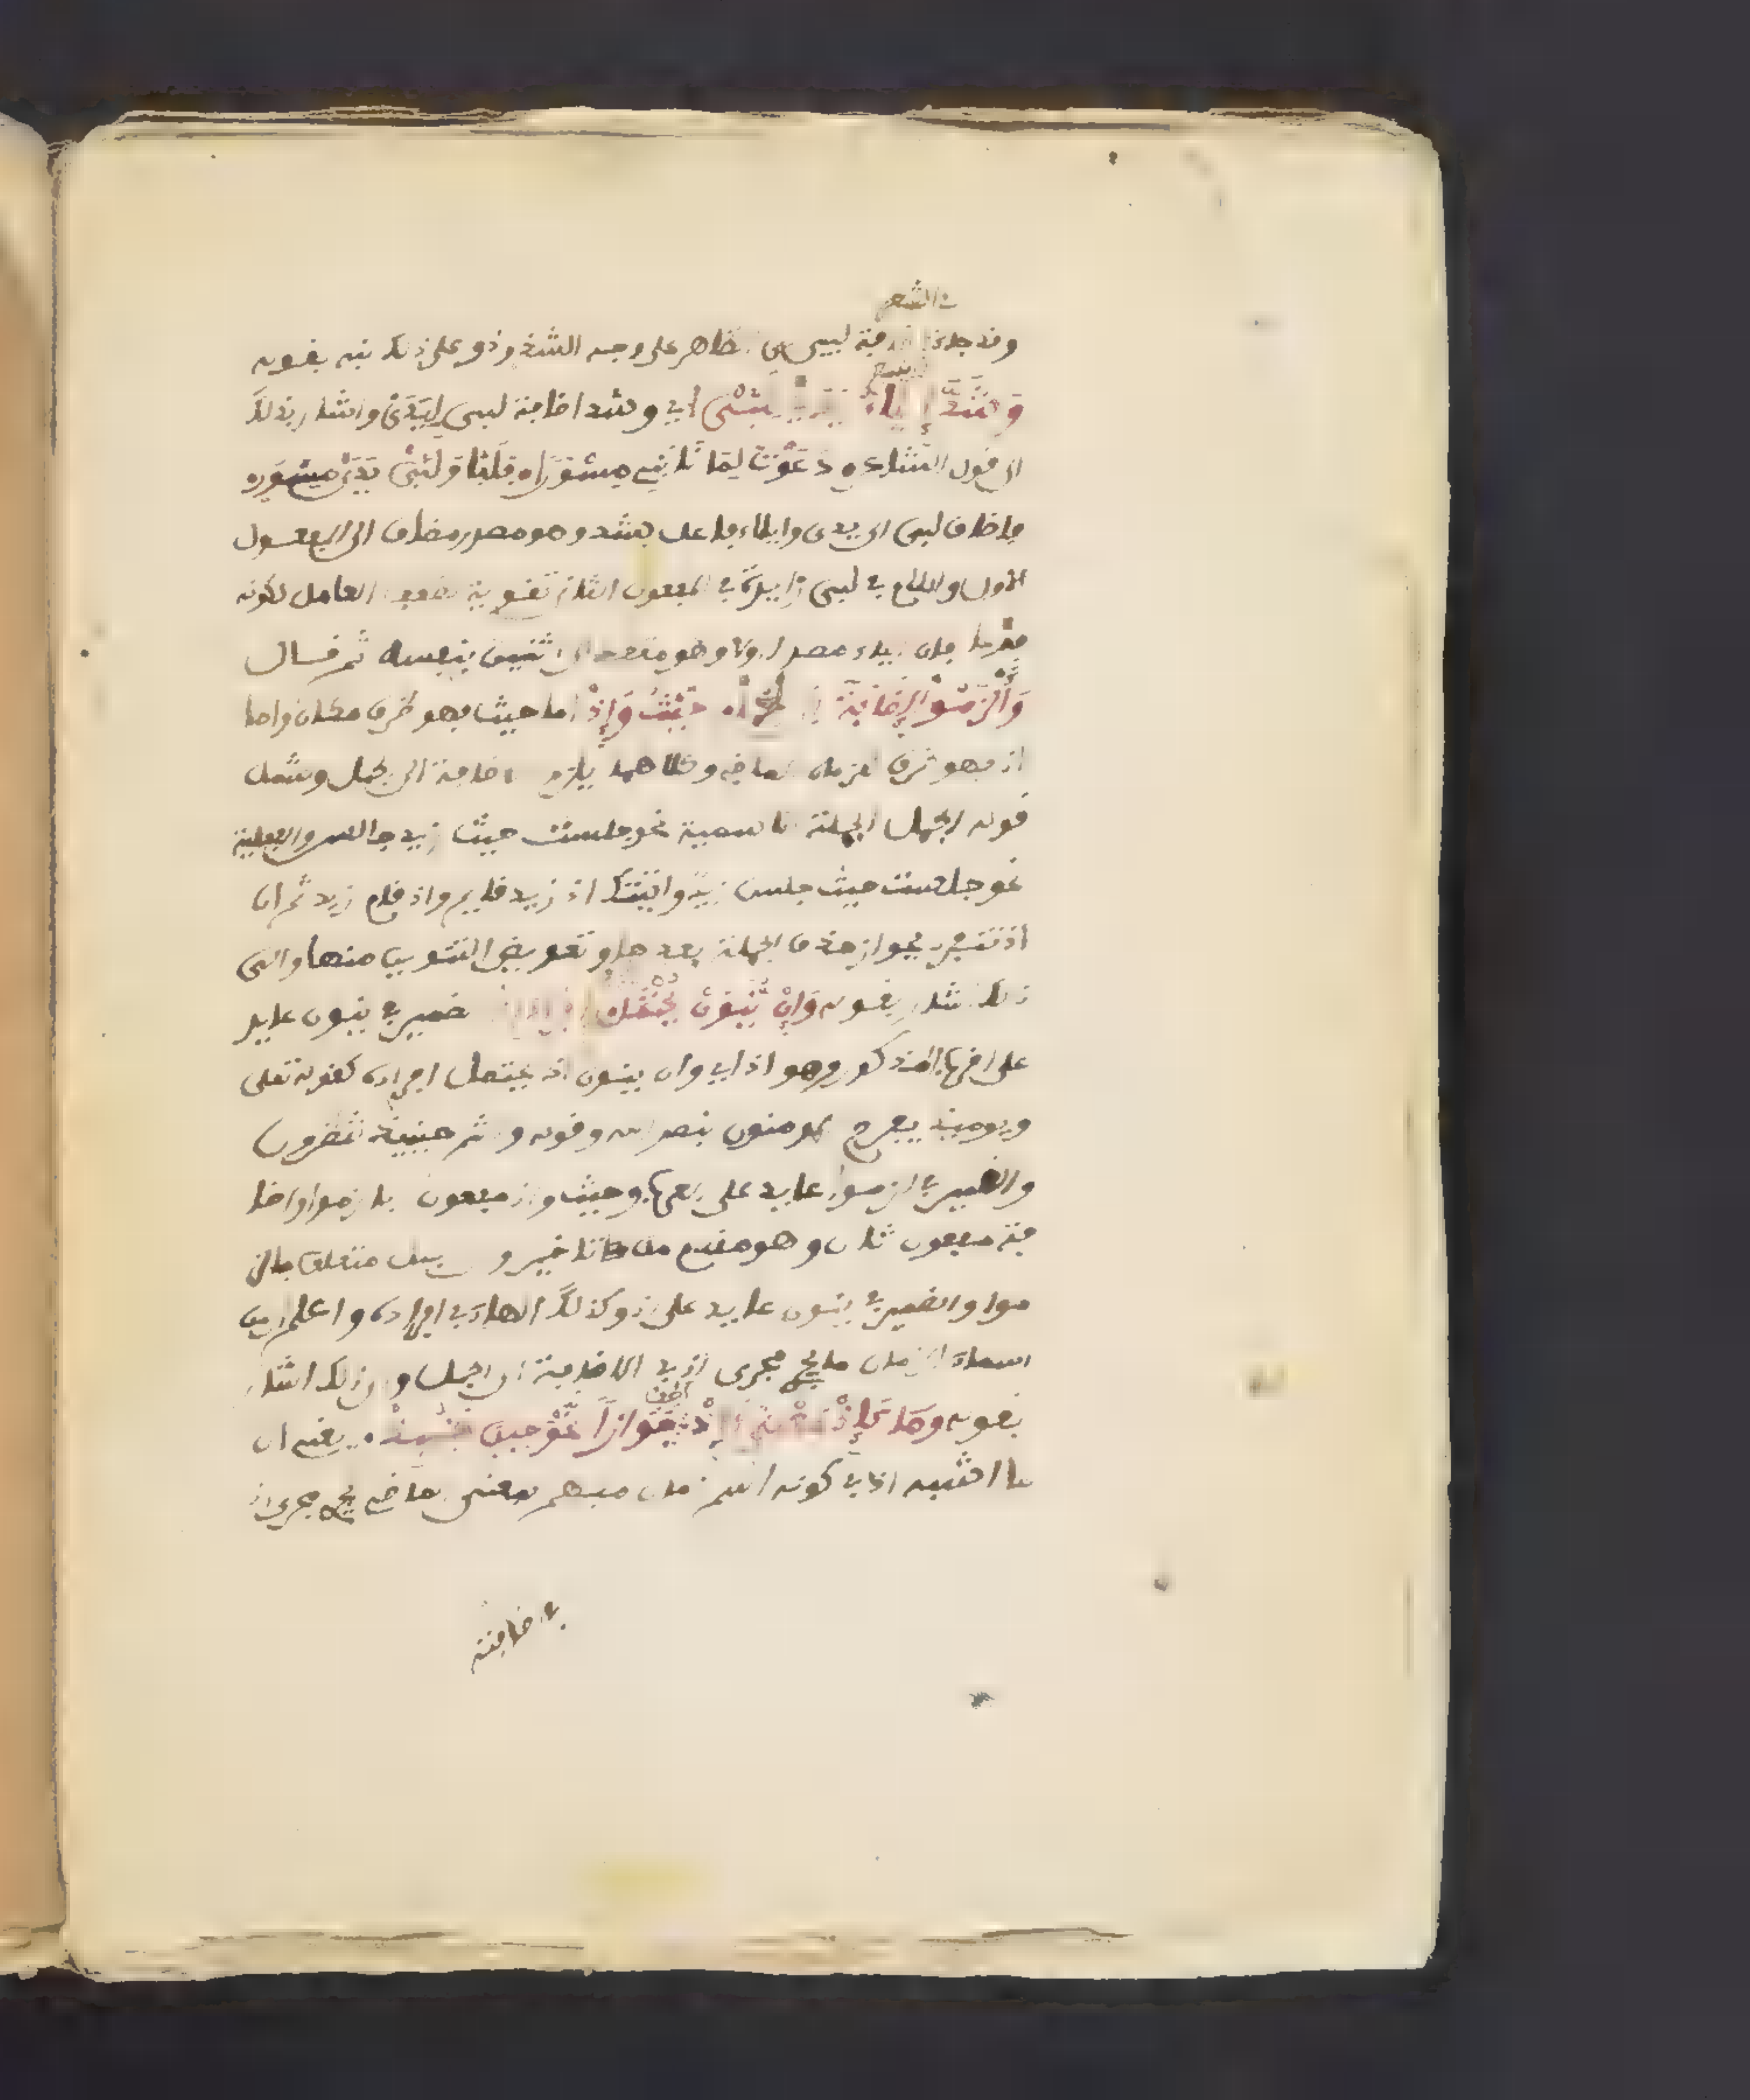 في الشعر
وقد جاءت اضافة لبي الى ظاهر على وجه الشذوذ وعلى ذلك نبه بقوله
وَشَذَّ إِيلَاءُ يَدَيْ لِلَبَّيْ اي وشذ اضافة لبي ليَدَيْ واشار بذلك
الى قول الشاعر دَعَوْتُ لِمَا نَابَنِي مِسْوَرًا فَلَبَّا فَلَبَّيْ يَدَيْ مِسْوَرِ
فاضاف لبي الى يدي وايلاء فاعل بشذ وهو مصدر مضاف الى المفعول
الاول واللام في لبي زايدة في المفعول الثاني تقوية لضعف العامل لكونه
فرعا فان ايلاء مصدر اولا وهو متعد الى اثنين بنفسه ثم قال
وَأَلْزَمُوا إِضَافَةً إلى الجمل حَيْثُ وَإِذْ اما حيث فهو ظرف مكان واما
اذ فهو ظرف لزمان ماضٍ وكلاهما يلزم اضافته الى جمل وشمل
قوله الجمل الجملة الاسمية نحو جلست حيث زيد جالس والفعلية
نحو جلست حيث جلس زيد واتيتك اذ زيد قايم واذ قام زيد ثم ان
اذ تنفرد بجواز حذف الجملة بعدها وتعويض التنوين منها والى
ذلك اشار بقوله وَإِنْ يُنَوَّنْ يُحْتَمَلْ افراد اذ ضمير في ينون عايد
على اقرب المذكور وهو اذ اي وان ينون اذ يحتمل افراده كقوله تعلى
ويوميذ يفرح المومنون بنصر الله وقوله وانتم حينيذ تنظرون
والضمير في الزموا عايد على العرب وحيث واذ مفعول بالزموا واضا
فة مفعول ثان وهو مقدم من تاخير و الى الجمل متعلق بالز
موا والضمير في ينون عايد على اذ وكذلك الهاء في افراده واعلم ان من
اسماء الزمان ما يجري مجرى اذ في الاضافة الى الجمل والى ذلك اشار
بقوله وَمَا كَإِذْ مَعْنًى كَإِذْ أضف جَوَازًا نَحْوُ حِينَ جَا نُبِذْ يعني ان
ما اشبه اذ في كونه اسم زمان مبهم بمعنى ماض يجري مجرى اذ
في اضافته